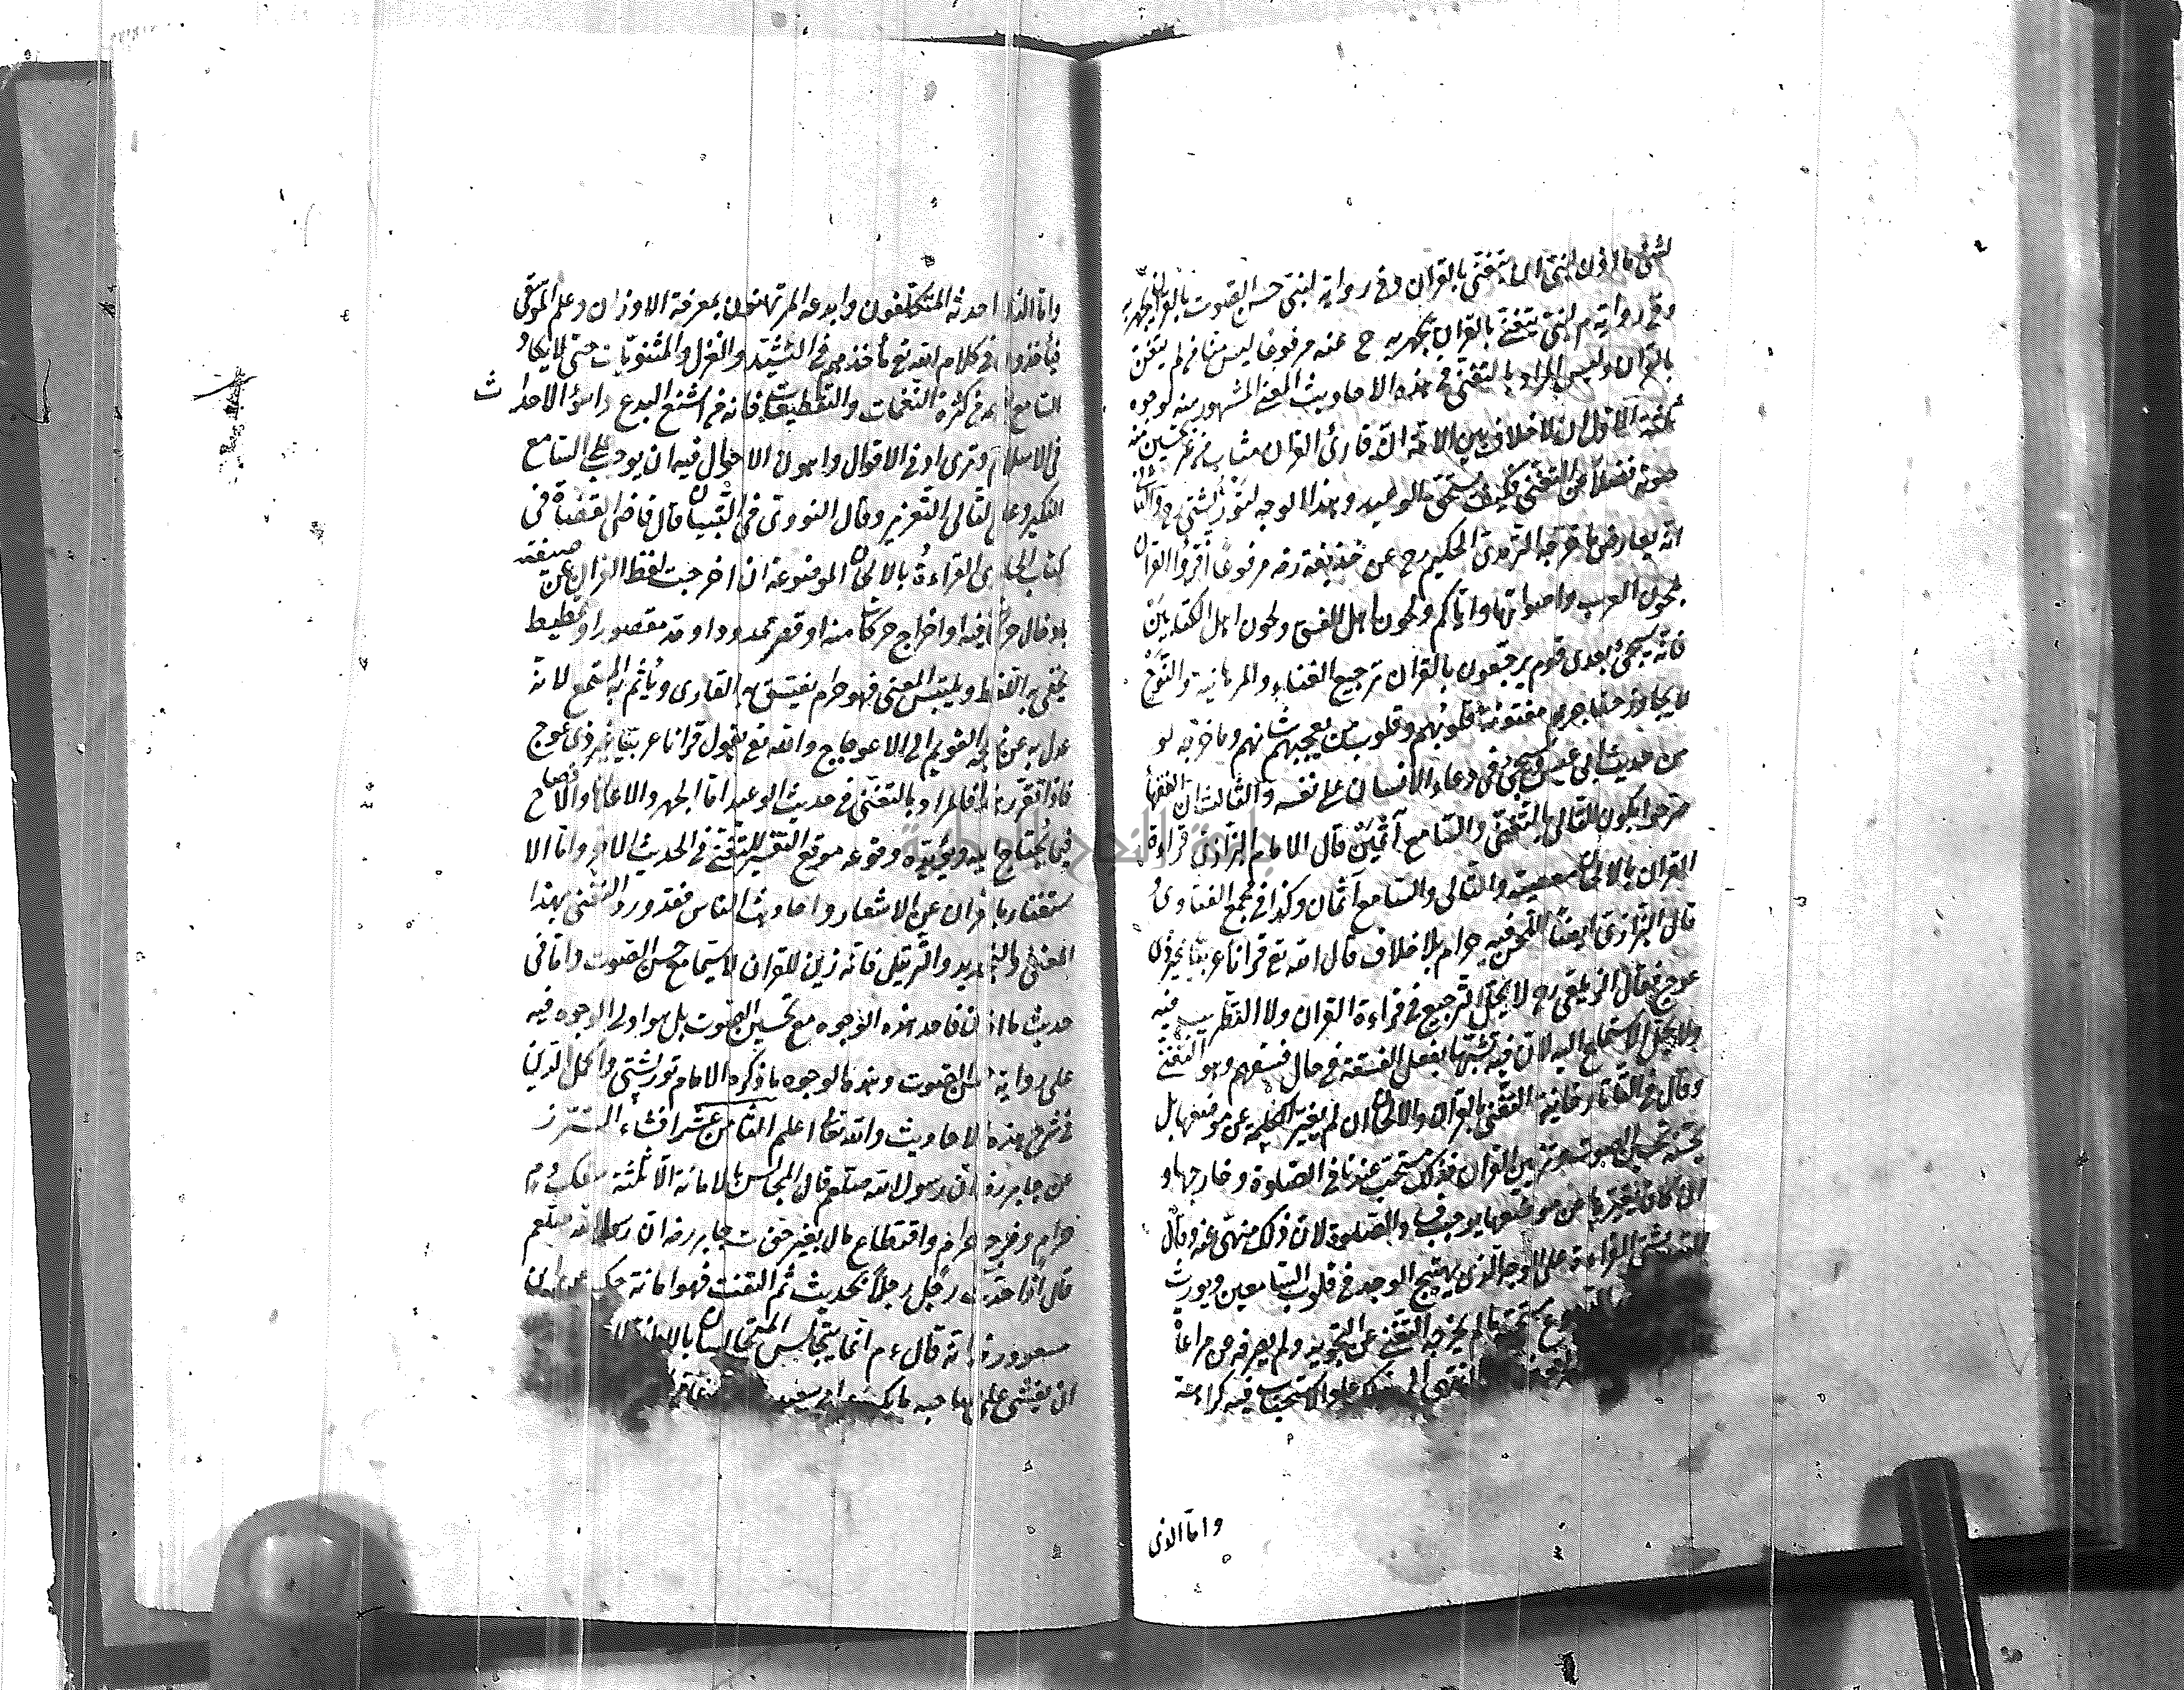 لشئ ما اذن لنبي ان يتغنى بالقرآن وفي رواية لنبي حسن الصوت بالقرآن يجهر به
وفي رواية م لنبي يتغنى بالقرآن يجهر به خ عنه مرفوعا ليس منا من لم يتغن
بالقرآن وليس المراد بالتغني في هذه الاحاديث المعنى المشهور منه لوجوه
ثلثة الاول ان لا خلاف بين الائمة ان قارئ القرآن مثاب من غير تحسين منه
صوته فضلا عن التغني فكيف يستحق بالوعيد وهذا الوجه لتوربشتي رح والثاني
انه يعارض ما خرجه الترمذي الحكيم رح عن حذيفة رضه مرفوعا اقرؤا القرآن
بلحون العرب واصواتها واياكم ولحون اهل الفسق ولحون اهل الكتابين
فانه سيجئ بعدي قوم يرجعون بالقرآن ترجيع الغناء والرهبانية والنوح
لا يجاوز حناجرهم مفتونة قلوبهم وقلوب من يعجبهم شانهم وما خرجه
من حديث ابي عبس وسيجئ في دعاء الانسان على نفسه والثالث ان الفقهاء
صرحوا بكون القالي بالتغني والسامع آثمين قال الامام البزازي قراءة
القرآن بالالحان معصية والتالي والسامع آثمان وكذا في مجمع الفتاوى
قال البزازي ايضا اللحن فيه حرام بلا خلاف قال الله تع قرآنا عربيا غير ذي
عوج وقال الزيلعي رح لا يحل الترجيع في قراءة القرآن ولا التطريب فيه
ولا يحل الاستماع اليه لان فيه تشبها بفعل الفسقة في حال فسقهم وهو التغني
وقال في التاتارخانية التغني بالقرآن والالحان ان لم يغير الكلمة عن موضعها بل
يحسنه تحسين الصوت وتزيين القرآن فذلك مستحب عندنا في الصلوة وخارجها و
ان كان يغيرها عن موضعها يوجب فساد الصلوة لان ذلك منهى عنه وقال
التوربشتي القراءة على الوجه الذي يهيج الوجد في قلوب السامعين ويورث
مستحبة ما لم يخرجه التغني عن التجويد ولم يصرفه عن مراعاة
الاستحباب فيه كراهة
واما الذي
واما الذي احدثه المتكلفون وابدعه المرتهنون بمعرفة الاوزان وعلم الموسيقى
فيأخذون في كلام الله تع مأخذهم في النشيد والغزل والمثنويات حتى لا يكاد
السامع يفهمه من كثرة النغمات والتقطيعات فانه من اشنع البدع واسؤ الاحداث
في الاسلام وترى ادنى الاقوال واهون الاحوال فيه ان يوجب على السامع
النكير وعلى التالي التعزير وقال النووي في التبيان قال قاضي القضاة في
كتاب الحاوي القراءة بالالحان الموضوعة ان اخرجت لفظ القرآن عن صيغته
بادخال حركات فيه او اخراج حركات منه او قصر ممدود او مد مقصور او تمطيط
يخفى به اللفظ ويلتبس المعنى فهو حرام يفسق به القارى ويأثم به المستمع لانه
عدل به عن نهجه القويم الى الاعوجاج والله تع يقول قرآنا عربيا غير ذي عوج
فاذا تقرر هذا فالمراد بالتغني في حديث الوعيد اما الجهر والاعلان والافصاح
فيما يحتاج اليه ويؤيده وقوعه موقع التفسير للتغني في الحديث الاخر واما الا
ستغناء بالقرآن عن الاشعار واحاديث الناس فقد ورد التغني بهذا
المعنى والتجويد والترتيل فانه زين للقرآن لا سيما مع حسن الصوت واما في
حديث ما اذن فاحد هذه الوجوه مع تحسين الصوت بل هو اولى الوجوه فيه
على رواية حسن الصوت وهذه الوجوه ما ذكره الامام توربشتي واكمل الدين
في شرح هذه الاحاديث والله تعا اعلم الثامن عشر افشاء السر د
عن جابر رضه ان رسول الله صلعم قال المجالس بالامانة الا ثلثة سفك دم
حرام وفرج حرام واقتطاع مال بغير حق ت جابر رضه ان رسول الله صلعم
قال اذا حدث رجل رجلا بحديث ثم التفت فهو امانة حك عن ابن
مسعود رضه انه قال ع م انما يتجالس المتجالسان بالامانة لا
ان يفشى على صاحبه ما يكره